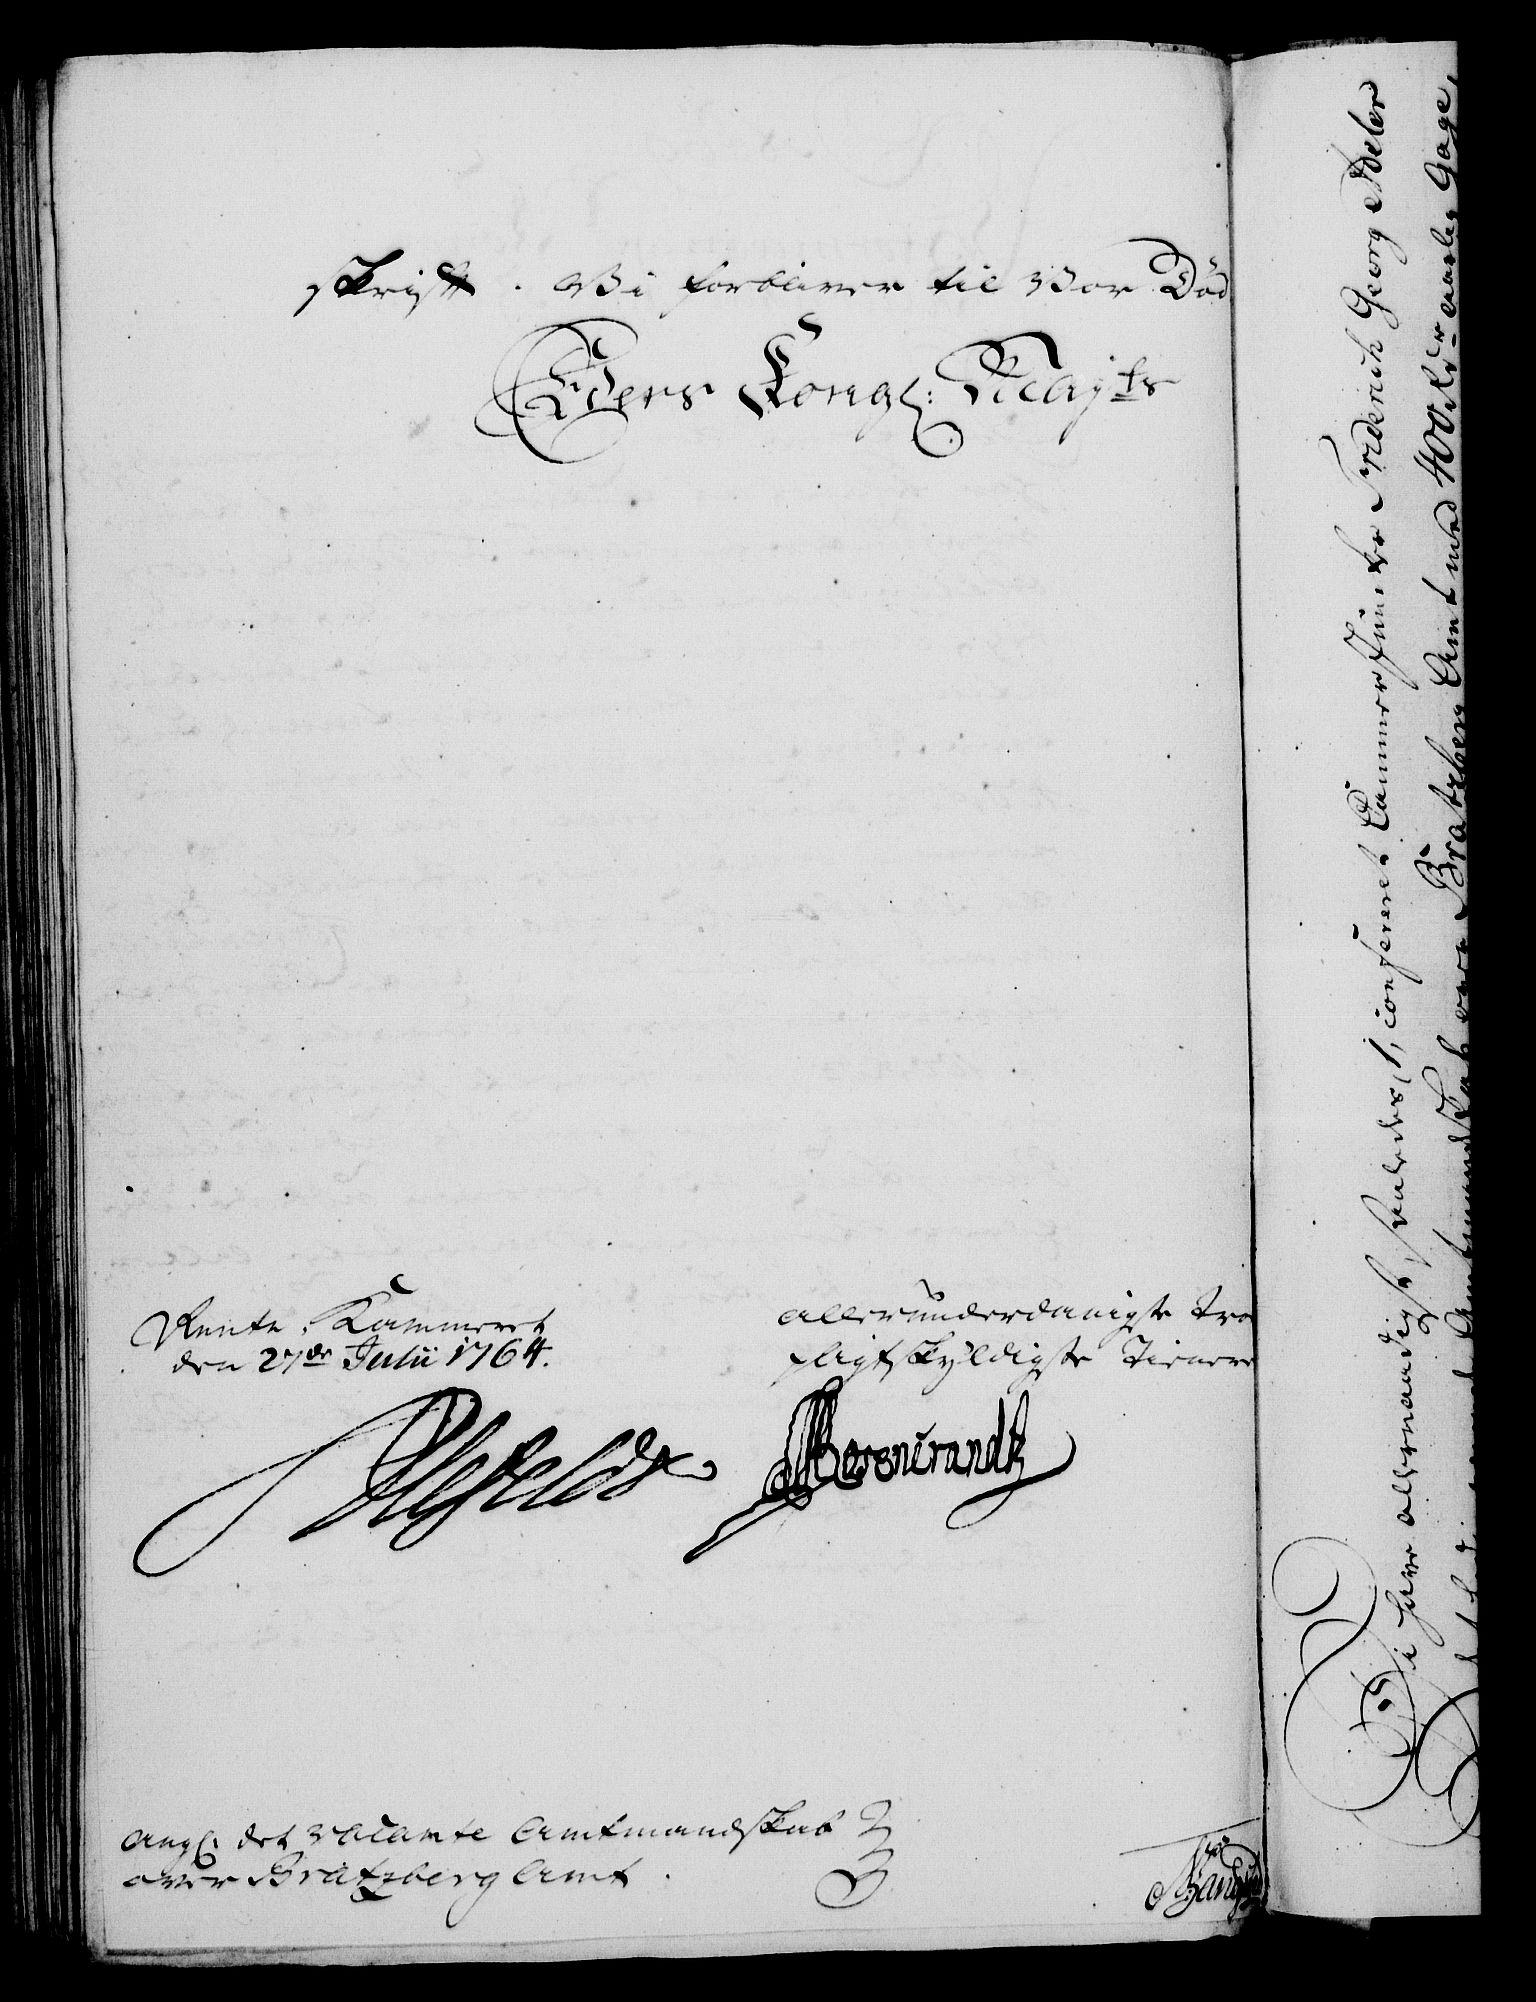 skrift. Vi forbliver til Vor Död
Eders Kongl: Mayts
Rente Kammeret
den 27de Julii 1764.
allerunderdanigste Tro
pligtskyldigste Tienere
Ahlefeldt
Berencrandtz
angl: det vacante Amtmandskab
over Bratzberg Amt.
Vi have allernaadigst confereret Cammer Junker Friderich Georg Adeler
Amtmandskab over Bratzberg Amt med 400 Rdr aarlig Gage,